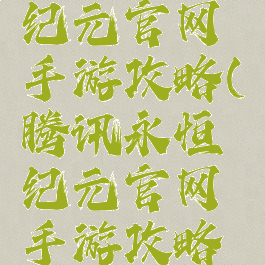 纪元官网
手游攻略(
腾讯永恒
纪元官网
手游攻略